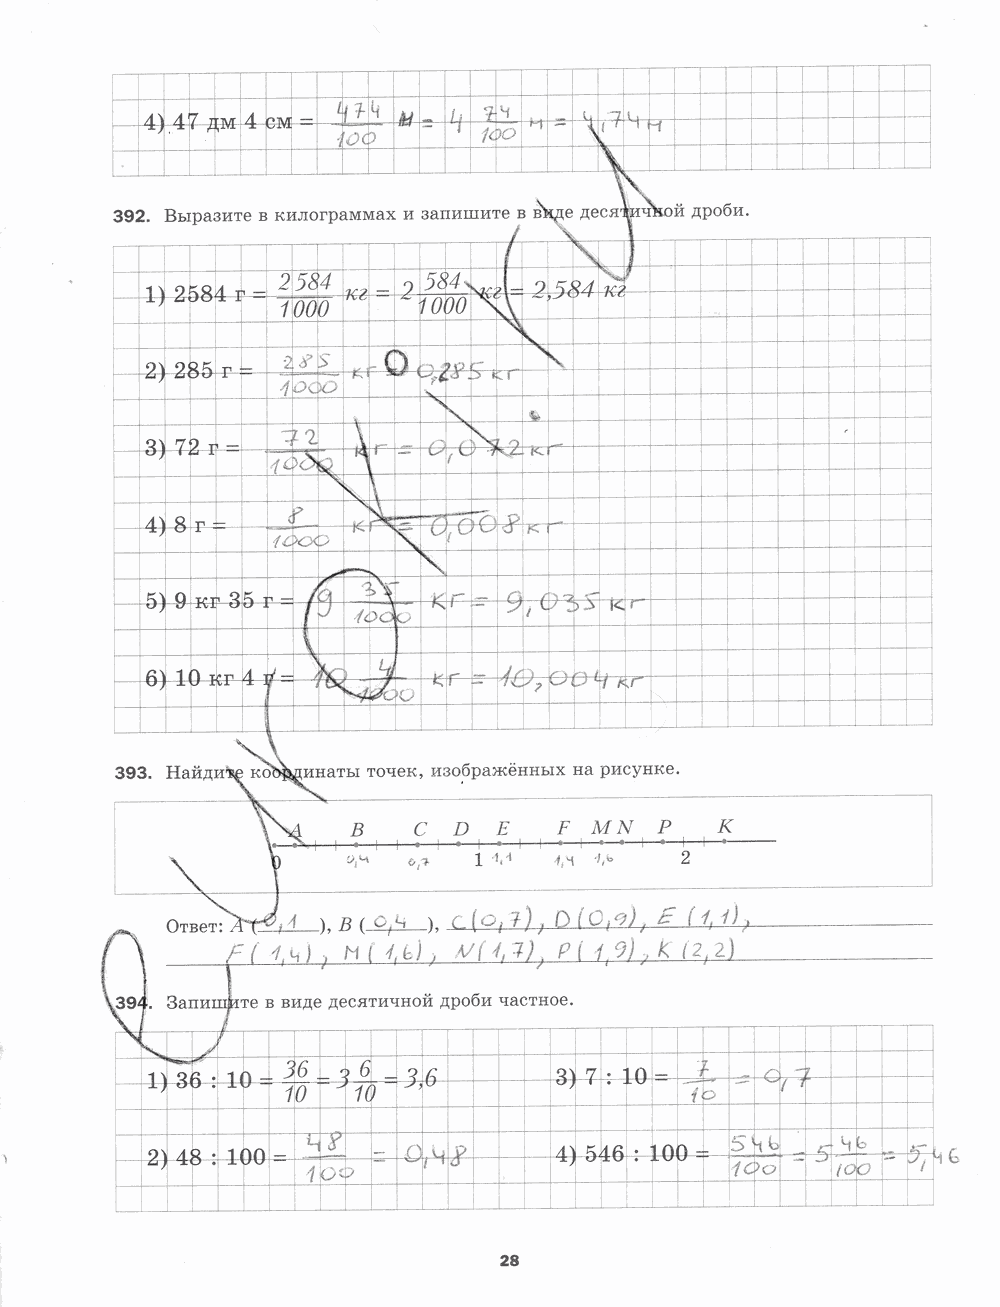 4) 47 дм 4 см = 474/100 м = 4 74/100 м = 4,74 м
392. Выразите в килограммах и запишите в виде десятичной дроби.
1) 2584 г = 2584/1000 кг = 2 584/1000 кг = 2,584 кг
2) 285 г = 285/1000 кг = 0,285 кг
3) 72 г = 72/1000 кг = 0,072 кг
4) 8 г = 8/1000 кг = 0,008 кг
5) 9 кг 35 г = 9 35/1000 кг = 9,035 кг
6) 10 кг 4 г = 10 4/1000 кг = 10,004 кг
393. Найдите координаты точек, изображённых на рисунке.
A B C D E F M N P K
0 0,4 0,7 1 1,1 1,4 1,6 2
Ответ: A (0,1), B (0,4), C(0,7), D(0,9), E (1,1),
F(1,4), M(1,6), N(1,7), P(1,9), K(2,2)
394. Запишите в виде десятичной дроби частное.
1) 36 : 10 = 36/10 = 3 6/10 = 3,6 3) 7 : 10 = 7/10 = 0,7
2) 48 : 100 = 48/100 = 0,48 4) 546 : 100 = 546/100 = 5 46/100 = 5,46
28